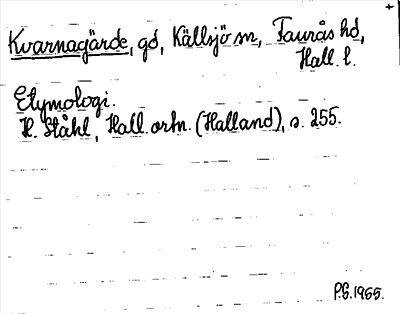 Kvarnagärde, gd, Källsjö sn, Faurås hd,
Hall. l.
Etymologi.
H. Ståhl, Hall. ortn. (Halland), s. 255.
P.G. 1955.